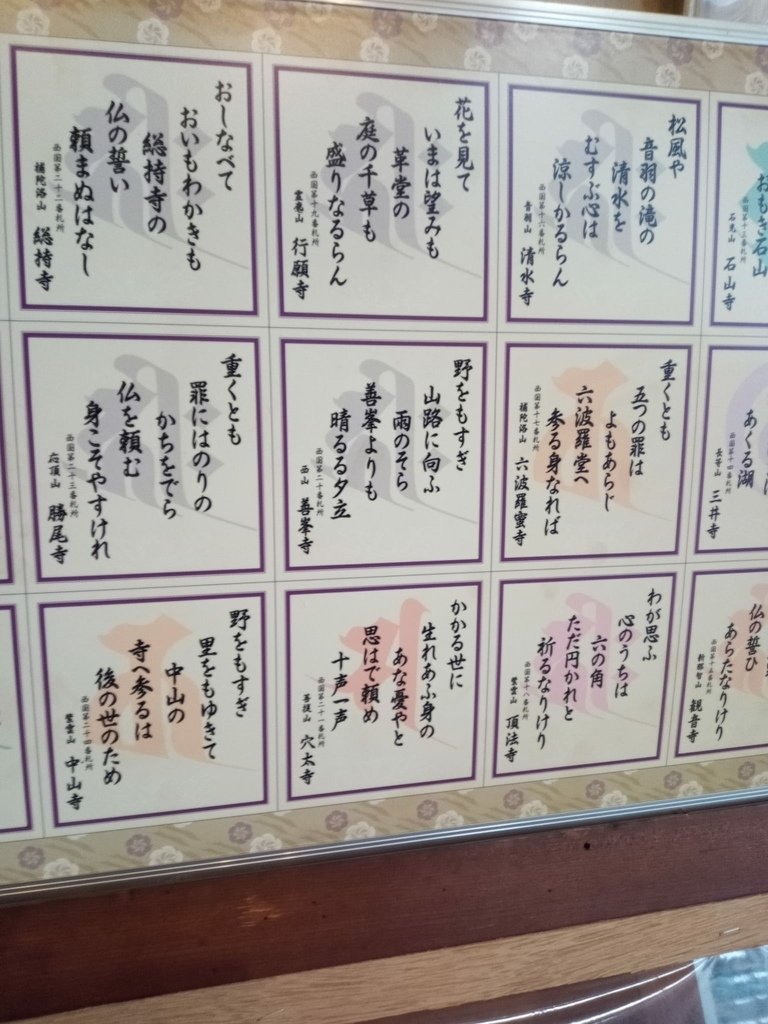 おもき石山
西国第十三番札所
石光山 石山寺
あくる湖
西国第十四番札所
長等山 三井寺
仏の誓ひ
あらたなりけり
西国第十五番札所
新那智山 観音寺
松風や
音羽の滝の
清水を
むすぶ心は
涼しかるらん
西国第十六番札所
音羽山 清水寺
重くとも
五つの罪は
よもあらじ
六波羅堂へ
参る身なれば
西国第十七番札所
補陀洛山 六波羅蜜寺
わが思ふ
心のうちは
六の角
ただ円かれと
祈るなりけり
西国第十八番札所
紫雲山 頂法寺
花を見て
いまは望みも
革堂の
庭の千草も
盛りなるらん
西国第十九番札所
霊麀山 行願寺
野をもすぎ
山路に向ふ
雨のそら
善峯よりも
晴るる夕立
西国第二十番札所
西山 善峯寺
かかる世に
生れあふ身の
あな憂やと
思はで頼め
十声一声
西国第二十一番札所
菩提山 穴太寺
おしなべて
おいもわかきも
総持寺の
仏の誓い
頼まぬはなし
西国第二十二番札所
補陀洛山 総持寺
重くとも
罪にはのりの
かちをでら
仏を頼む
身こそやすけれ
西国第二十三番札所
応頂山 勝尾寺
野をもすぎ
里をもゆきて
中山の
寺へ参るは
後の世のため
西国第二十四番札所
紫雲山 中山寺